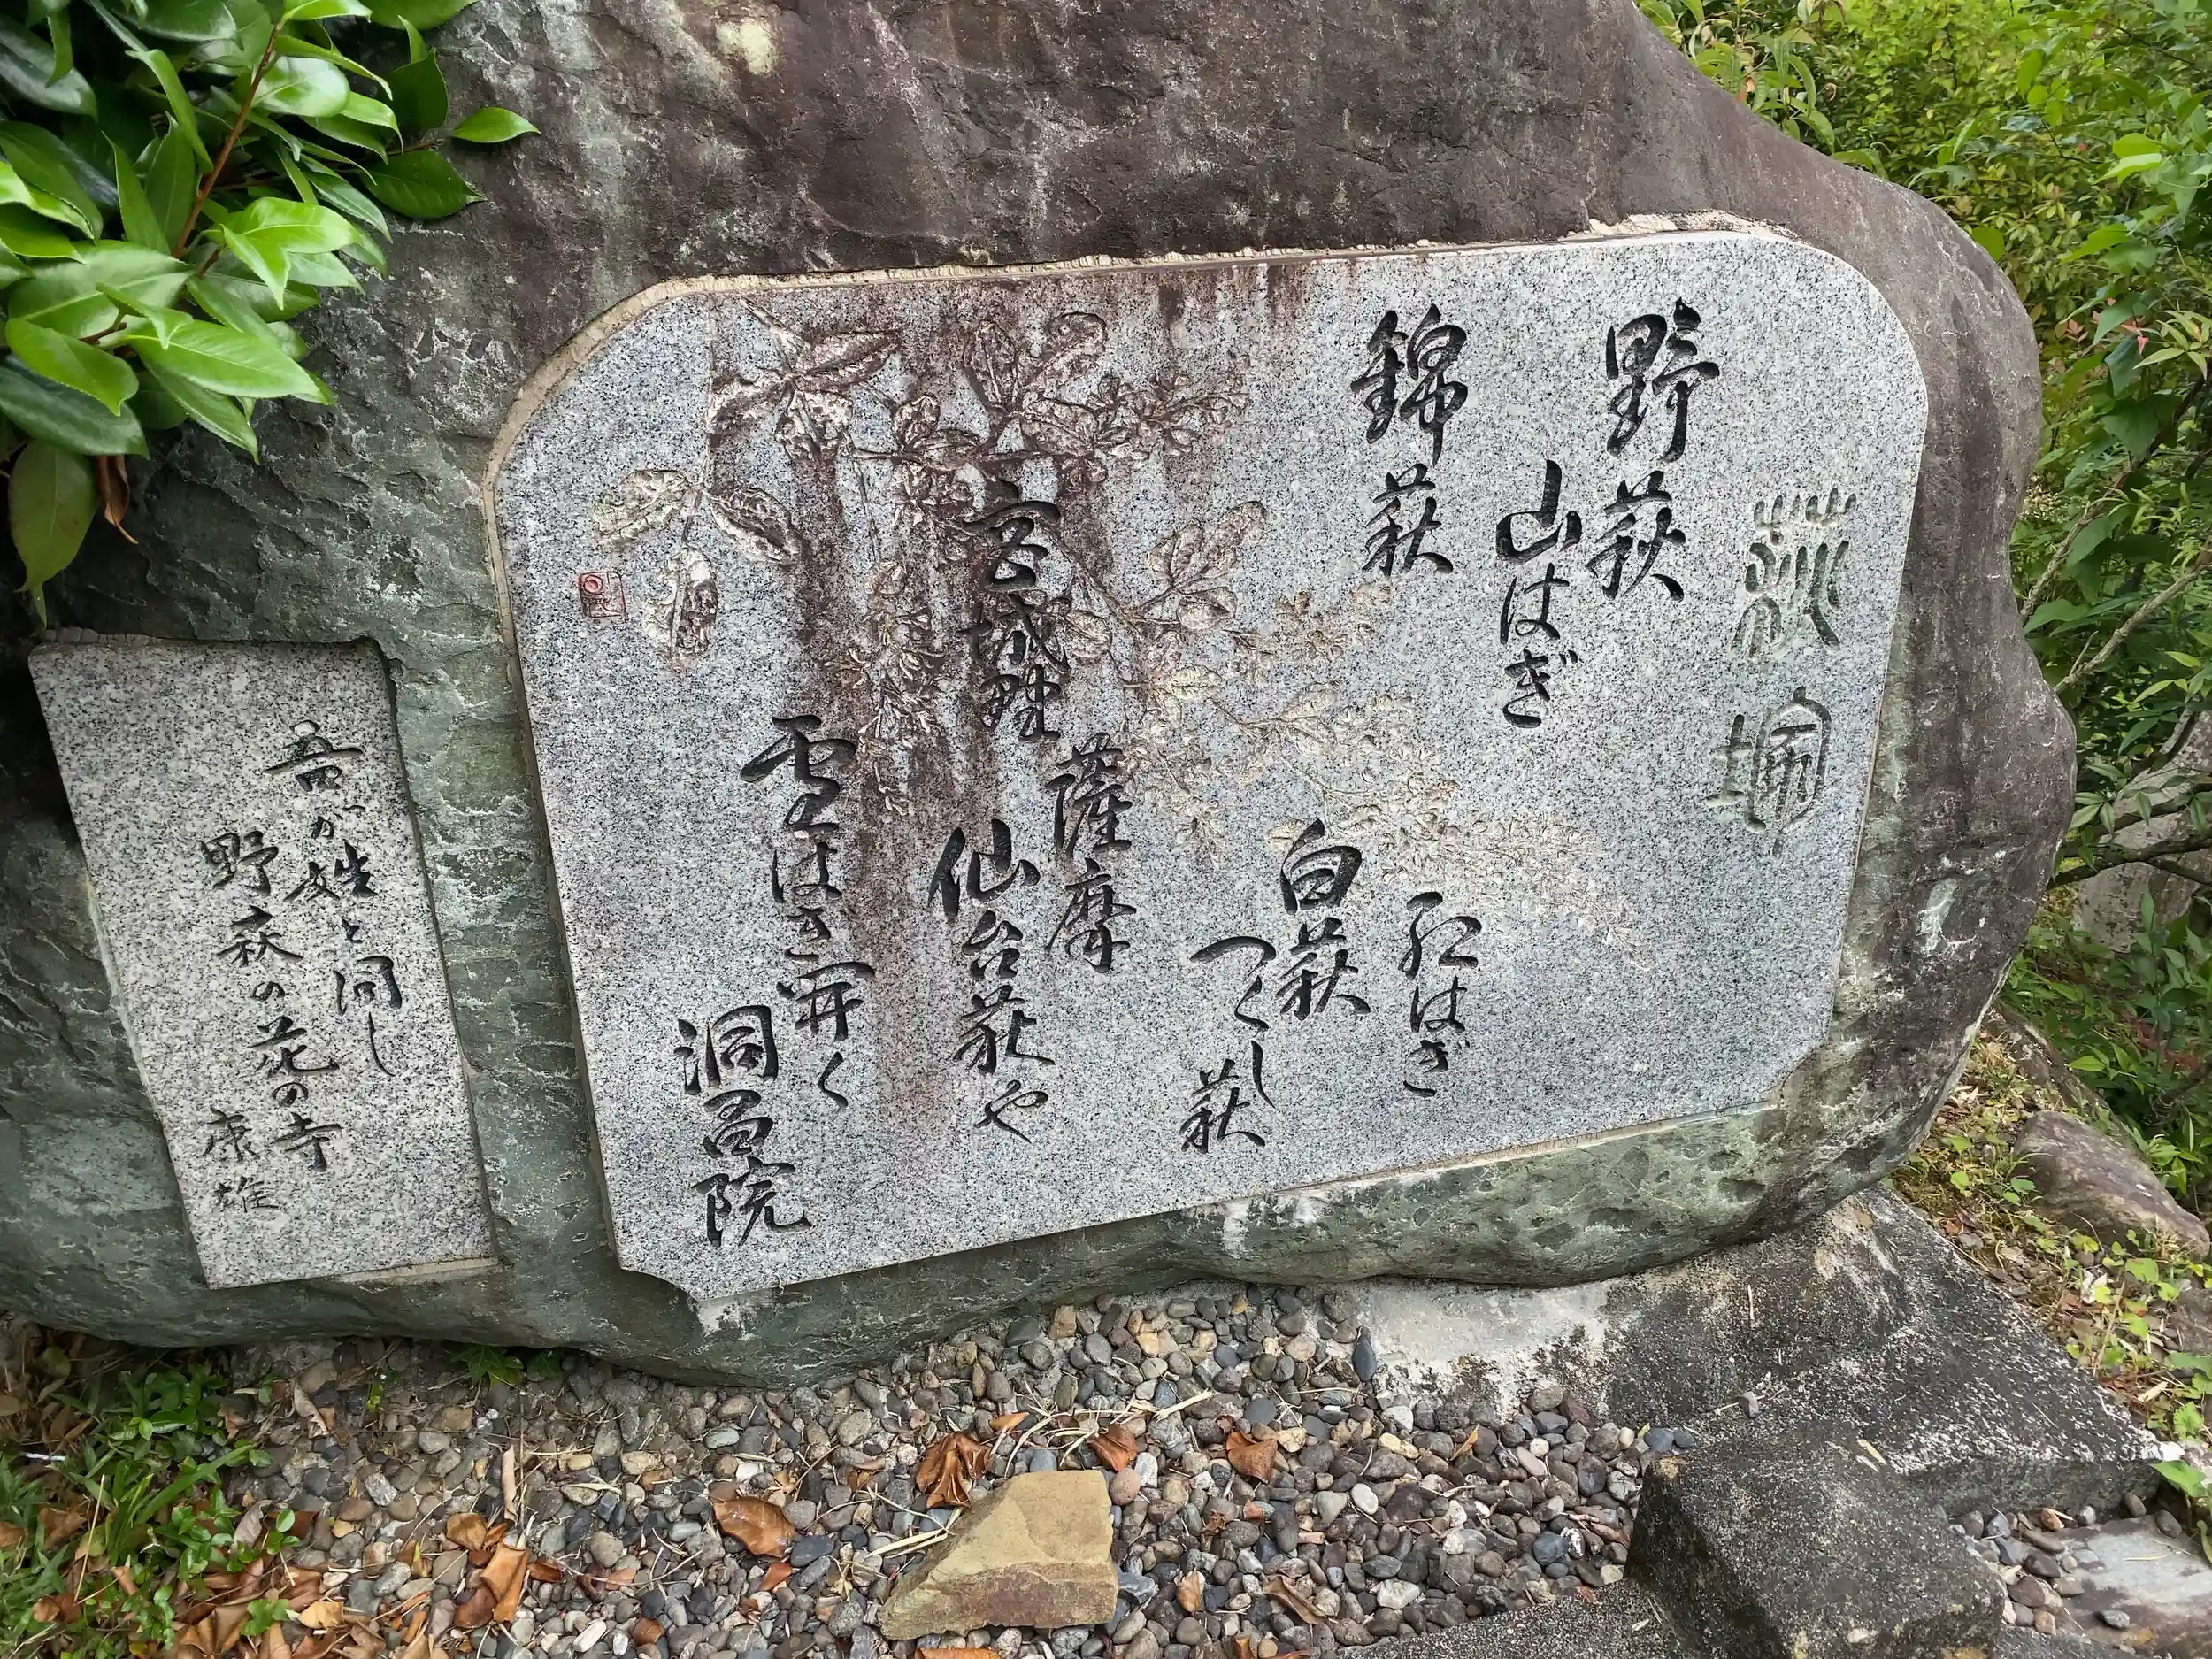 萩
野萩
山はぎ
錦萩
紅はぎ
白萩
つくし萩
宮城野
薩摩
仙台萩や
雲はき開く
洞昌院
吾が姓と同し
野萩の花の寺
康雄